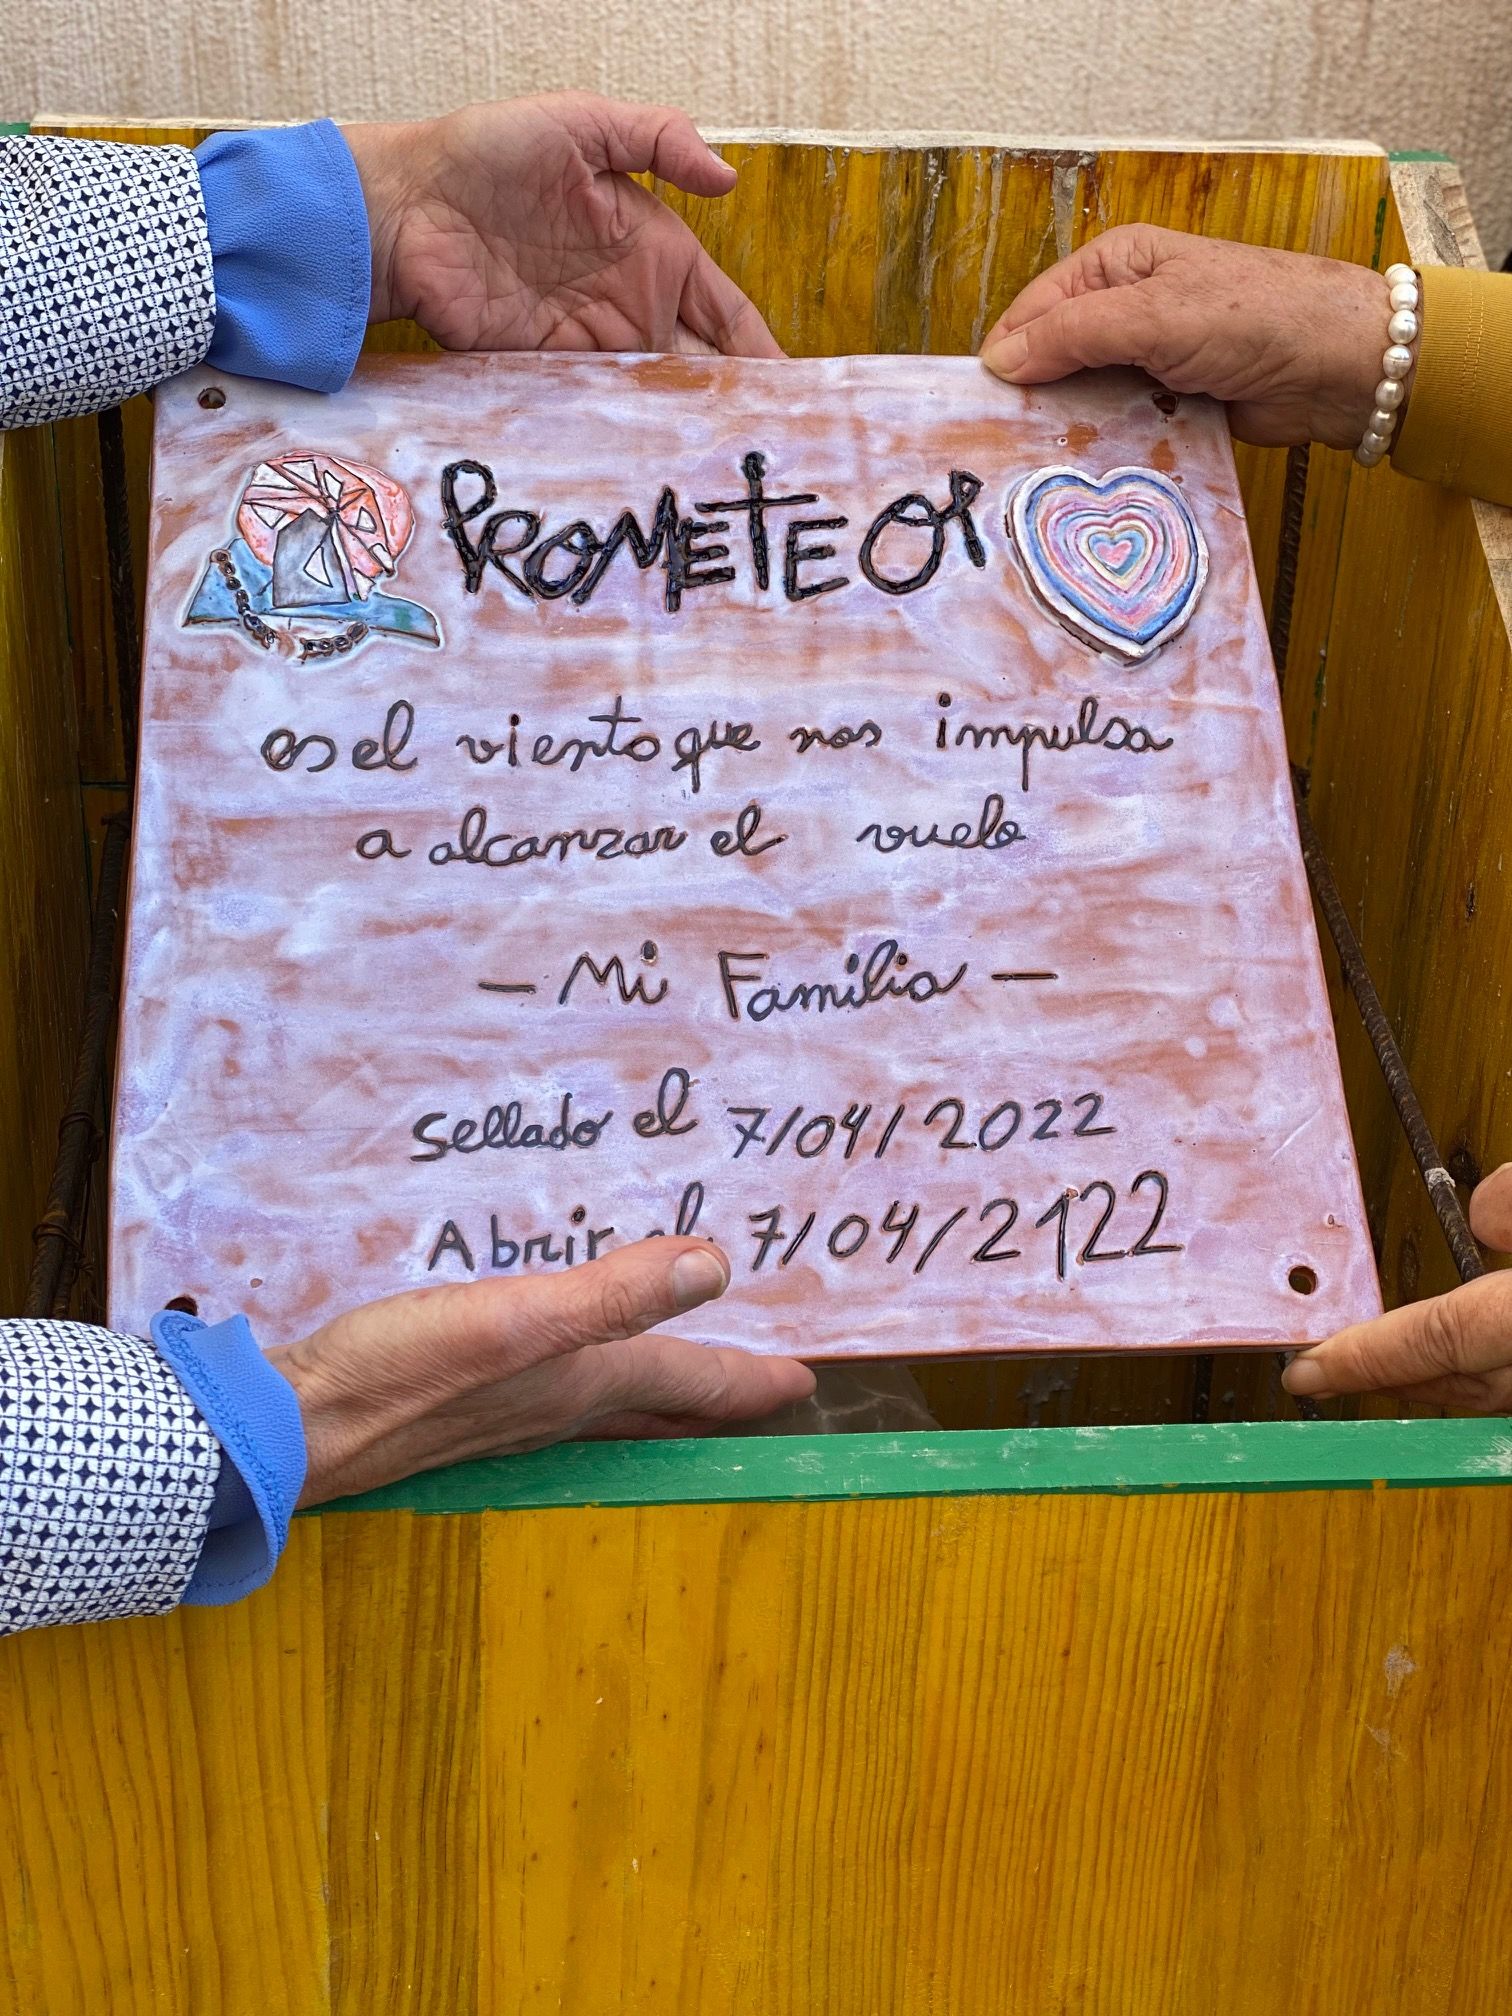 PROMETEO
es el viento que nos impulsa
a alcanzar el vuelo
- Mi Familia -
Sellado el 7/04/2022
Abrir el 7/04/2122